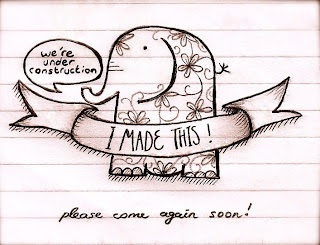 we're
under
construction
I MADE THIS!
please come again soon!